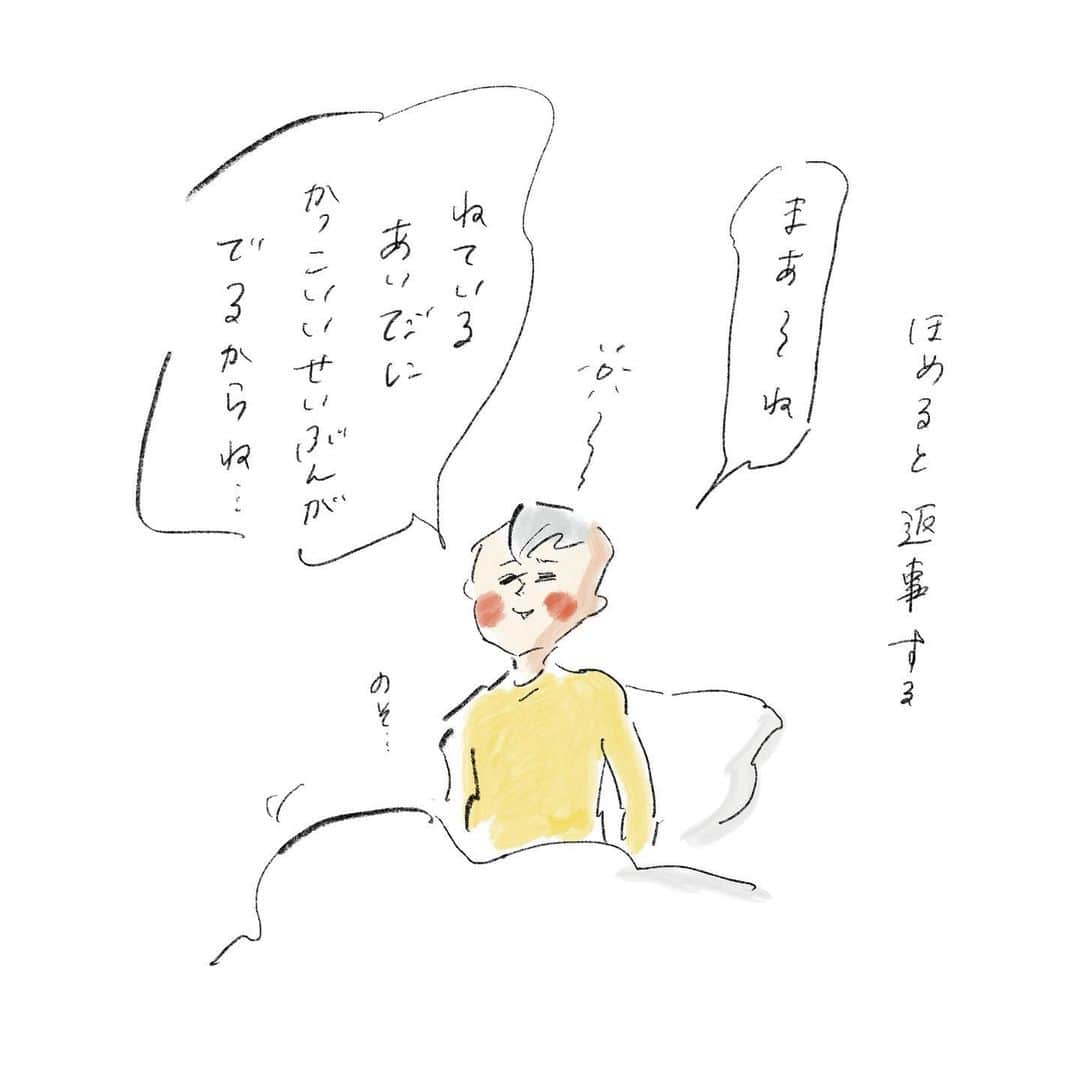 ほめると返事する
まあ〜ね
ねている
あいだに
かっこいいせいぶんが
でるからね…
のそ…